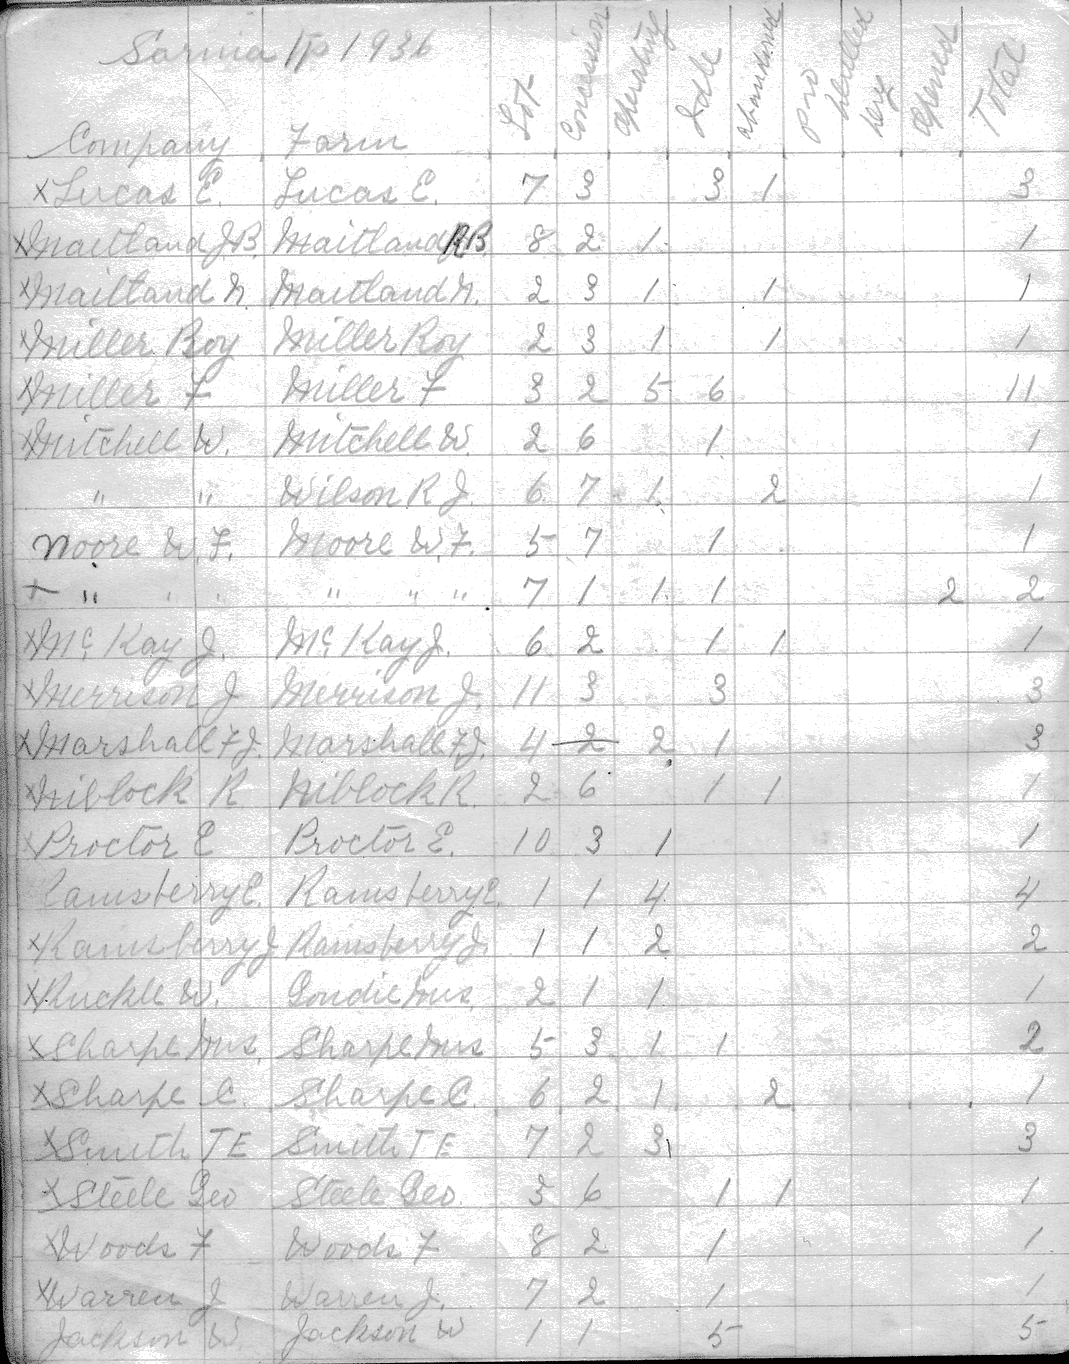 Sarnia Tp 1936
Company Farm Lot Concession operating Idle abandoned pro drilled deep opened Total
x Lucas E. Lucas E. 7 3 3 1 3
x Maitland J.B. Maitland R.B. 8 2 1 1
x Maitland N. Maitland N. 2 3 1 1 1
x Miller Roy Miller Roy 2 3 1 1 1
x Miller F Miller F 3 2 5 6 11
x Mitchell W. Mitchell W. 2 6 1 1
" " Wilson R J. 6 7 1 2 1
Moore W.F. Moore W.F. 5 7 1 1
+ " " " " " " 7 1 1 1 2 2
x Mc Kay J. Mc Kay J. 6 2 1 1 1
x Merrison J Merrison J. 11 3 3 3
x Marshall F.J. Marshall F.J. 4 2 2 1 3
x Niblock R Niblock R. 2 6 1 1 1
x Proctor E Proctor E. 10 3 1 1
Ramsberry E. Ramsberry E. 1 1 4 4
x Ramsberry J Ramsberry J. 1 1 2 2
x Ruckle W. Goudie Mrs 2 1 1 1
x Sharpe Mrs. Sharpe Mrs 5 3 1 1 2
x Sharpe C. Sharpe C. 6 2 1 2 1
x Smith T E Smith T E 7 2 3 3
x Steele Geo Steele Geo. 3 6 1 1 1
x Woods F Woods F 8 2 1 1
x Warren J Warren J. 7 2 1 1
Jackson W. Jackson W 1 1 5 5